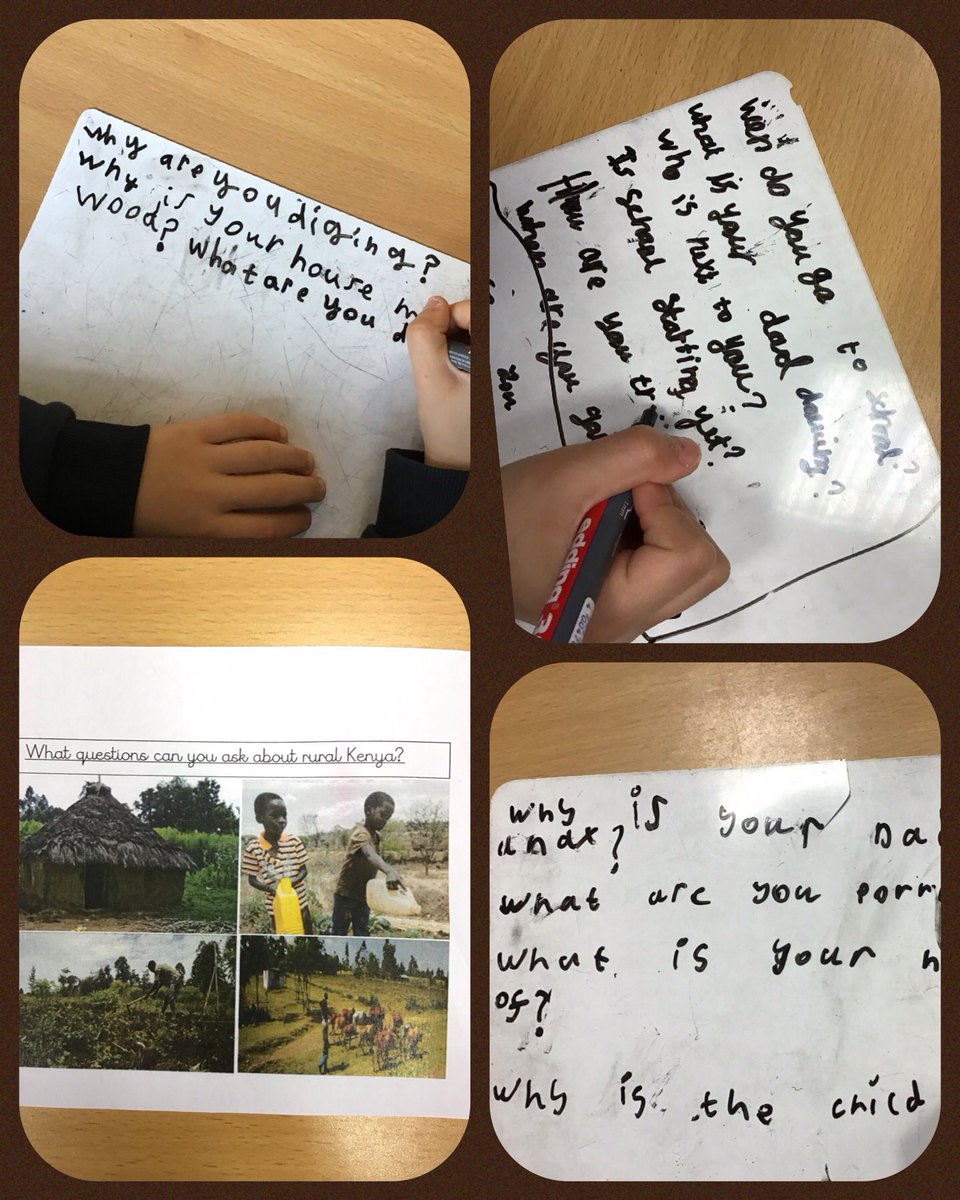 why are you diging?
why is your house m
wood? What are you d
do you go to
what is your dad
who is next to you?
Is school starting yet?
How are you tr
when are you
edding 3
What questions can you ask about rural Kenya?
why is your Da
?
what are you porm
what is your h
of?
why is the child